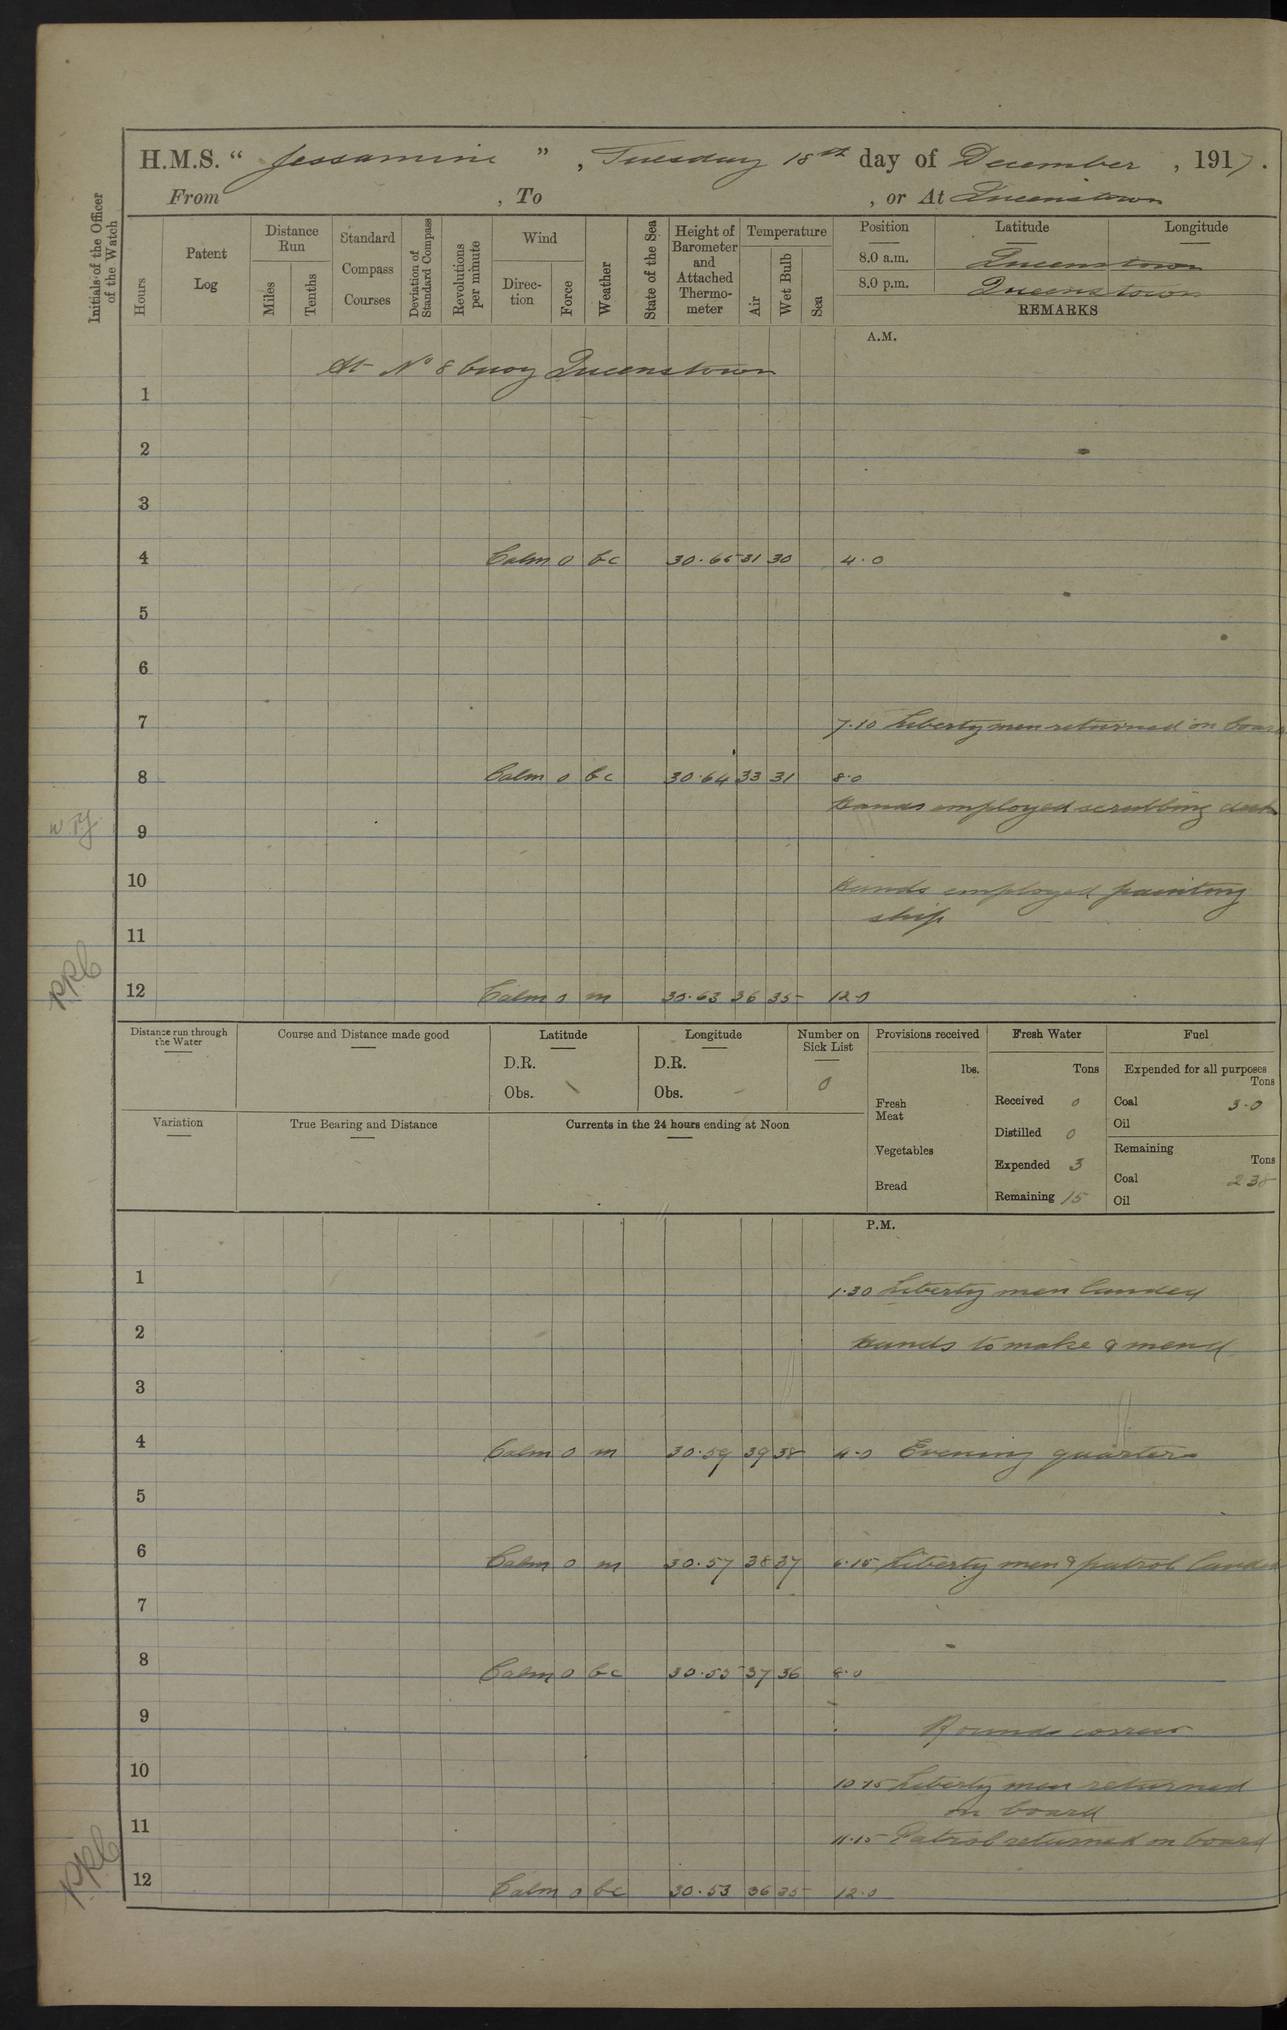 H.M.S. “ Jessamine ” , Tuesday 18th day of December , 1917.
From , To , or At Queenstown
Initials of the Officer of the Watch
Hours
Patent Log
Distance Run
Miles
Tenths
Standard Compass Courses
Deviation of Standard Compass
Revolutions per minute
Wind
Direction
Force
Weather
State of the Sea
Height of Barometer and Attached Thermometer
Temperature
Air
Wet Bulb
Sea
Position Latitude Longitude
8.0 a.m. Queenstown
8.0 p.m. Queenstown
REMARKS
A.M.
At No 8 buoy Queenstown
1
2
3
4 Calm 0 bc 30.65 31 30 4.0
5
6
7 7.10 Liberty men returned on board
8 Calm 0 bc 30.64 33 31 8.0
Hands employed scrubbing deck
9
10 Hands employed painting
ship
11
12 Calm 0 m 30.63 36 35 12.0
Distance run through the Water
Course and Distance made good
Latitude
D.R.
Obs.
Longitude
D.R.
Obs.
Number on Sick List
0
Provisions received
lbs.
Fresh Meat
Vegetables
Bread
Fresh Water
Tons
Received 0
Distilled 0
Expended 3
Remaining 15
Fuel
Expended for all purposes
Tons
Coal 3.0
Oil
Remaining
Tons
Coal 238
Oil
Variation
True Bearing and Distance
Currents in the 24 hours ending at Noon
P.M.
1 1.30 Liberty men landed
2 Hands to make & mend
3
4 Calm 0 m 30.59 39 38 4.0 Evening quarters
5
6 Calm 0 m 30.57 38 37 6.15 Liberty men & patrol landed
7
8 Calm 0 bc 30.55 37 36 8.0
9 Rounds correct
10 10.15 Liberty men returned
on board
11 11.15 Patrol returned on board
12 Calm 0 bc 30.53 36 35 12.0